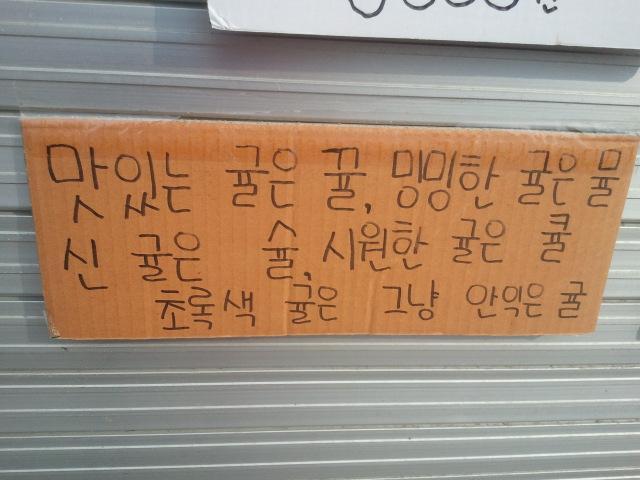 맛있는 귤은 뀰, 밍밍한 귤은 뮬
신 귤은 슐, 시원한 귤은 큘
초록색 귤은 그냥 안익은 귤